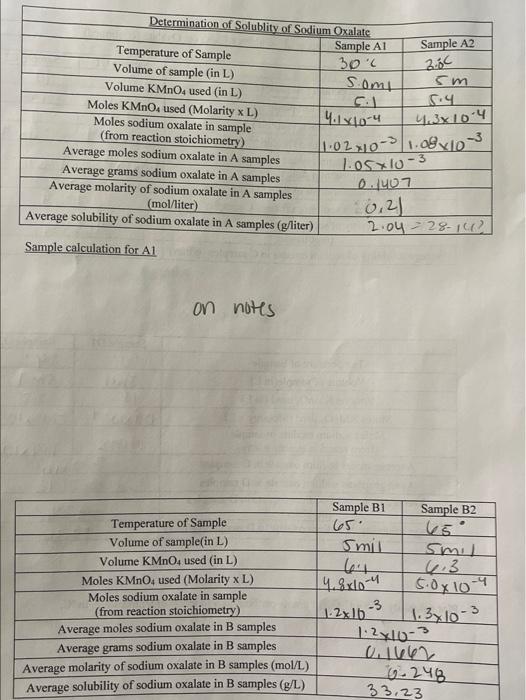 Determination of Solublity of Sodium Oxalate
Sample A1 Sample A2
Temperature of Sample 30°C
Volume of sample (in L) 5.0ml 5m
Volume KMnO₄ used (in L) 5.1 5.4
Moles KMnO₄ used (Molarity x L) 4.1x10-4 4.3x10-4
Moles sodium oxalate in sample
(from reaction stoichiometry) 1.02x10-3 1.08x10-3
Average moles sodium oxalate in A samples 1.05x10-3
Average grams sodium oxalate in A samples 0.1407
Average molarity of sodium oxalate in A samples
(mol/liter) 0.21
Average solubility of sodium oxalate in A samples (g/liter) 2.04
Sample calculation for A1
on notes
Sample B1 Sample B2
Temperature of Sample 65° 65°
Volume of sample(in L) 5mil 5mil
Volume KMnO₄ used (in L) 6.1 6.3
Moles KMnO₄ used (Molarity x L) 4.8x10-4 5.0x10-4
Moles sodium oxalate in sample
(from reaction stoichiometry) 1.2x10-3 1.3x10-3
Average moles sodium oxalate in B samples 1.2x10-3
Average grams sodium oxalate in B samples 0.1662
Average molarity of sodium oxalate in B samples (mol/L) 0.248
Average solubility of sodium oxalate in B samples (g/L) 33.23